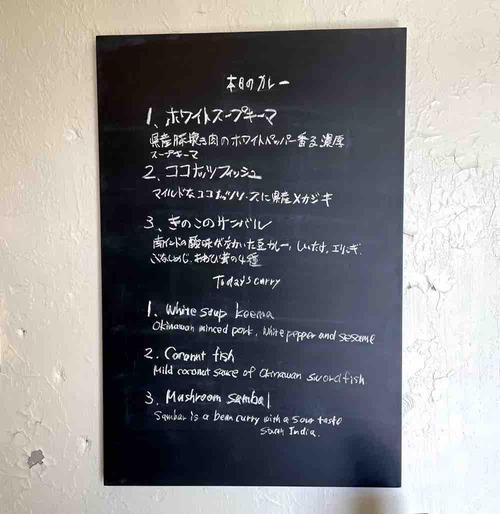 本日のカレー
1、ホワイトスープキーマ
県産豚挽き肉のホワイトペッパー香る濃厚
スープキーマ
2、ココナッツフィッシュ
マイルドなココナッツソースに県産メカジキ
3、きのこのサンバル
南インドの酸味が効いた豆カレー。しいたけ、エリンぎ、
ぶなしめじ、の4種
Today's curry
1. White soup keema
Okinawan minced pork, White pepper and sesame
2. Coconut fish
Mild coconut sauce of Okinawan swordfish
3. Mushroom sambal
Sambar is a bean curry with a sour taste
South India.